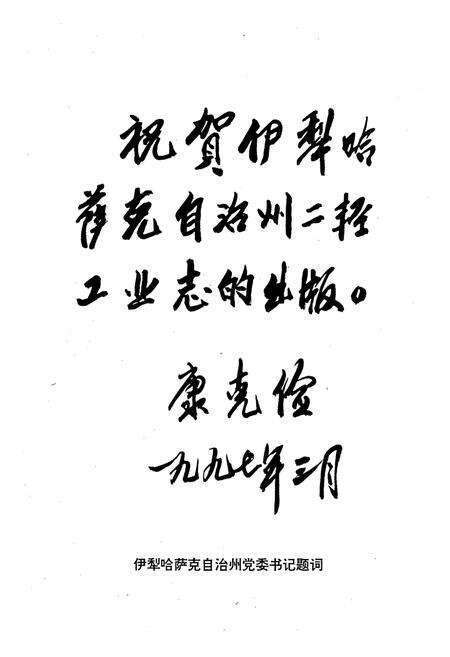 祝贺伊犁哈
萨克自治州二轻
工业志的出版。
康克俭
一九九七年三月
伊犁哈萨克自治州党委书记题词